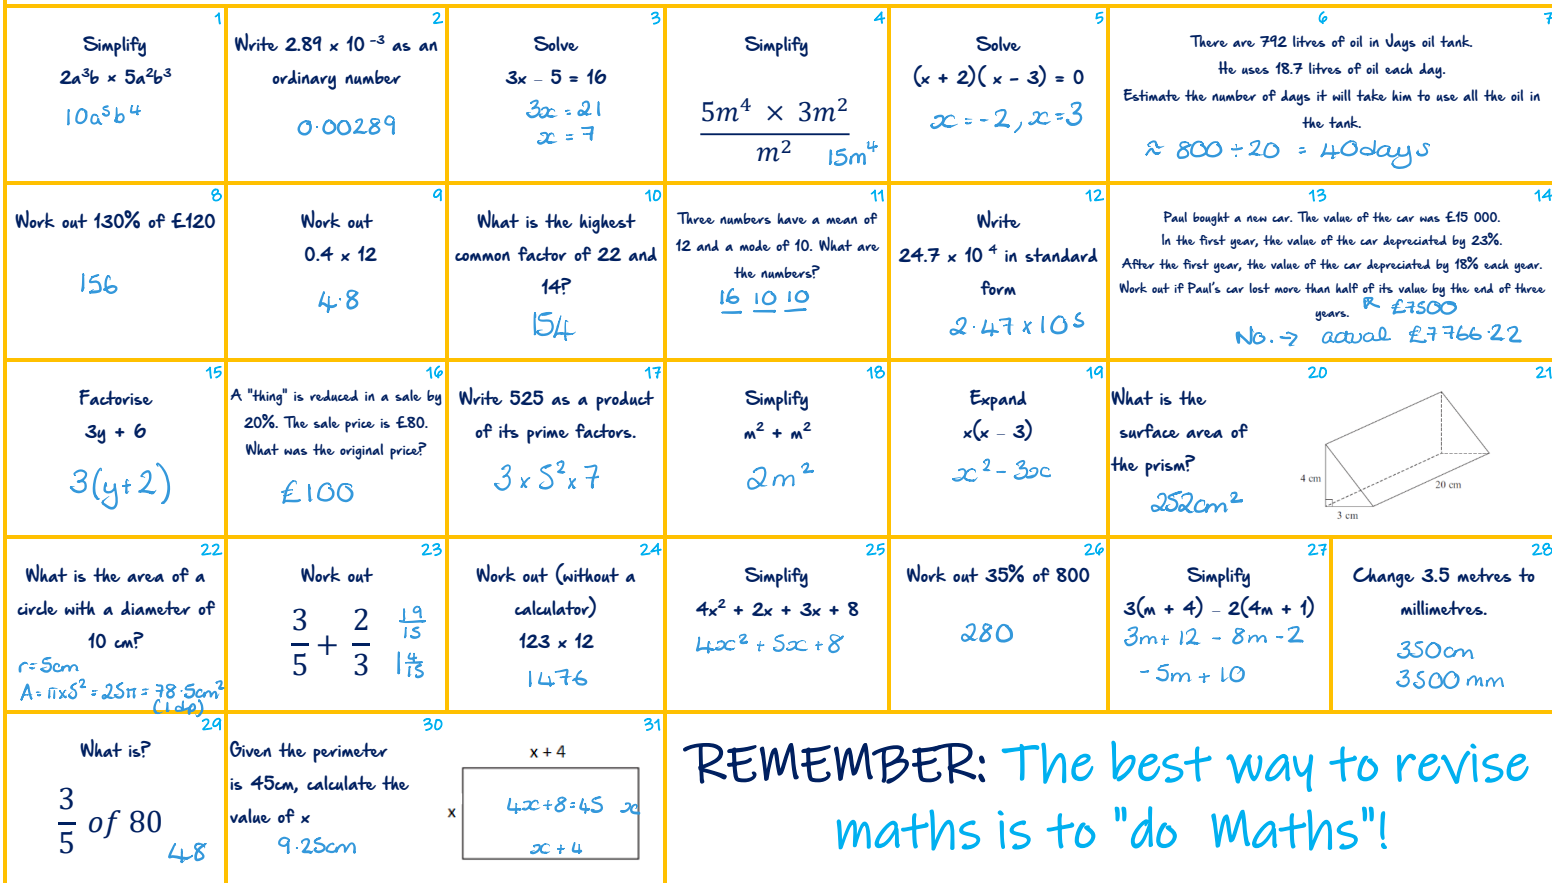 1
Simplify
2a³b × 5a²b³
10a⁵b⁴
2
Write 2.89 x 10 ⁻³ as an
ordinary number
0.00289
3
Solve
3x – 5 = 16
3x = 21
x = 7
4
Simplify
5m⁴ × 3m²
m²
15m⁴
5
Solve
(x + 2)( x – 3) = 0
x = -2, x = 3
6
7
There are 792 litres of oil in Jays oil tank.
He uses 18.7 litres of oil each day.
Estimate the number of days it will take him to use all the oil in
the tank.
≈ 800 ÷ 20 = 40days
8
Work out 130% of £120
156
9
Work out
0.4 x 12
4.8
10
What is the highest
common factor of 22 and
14?
154
11
Three numbers have a mean of
12 and a mode of 10. What are
the numbers?
16 10 10
12
Write
24.7 x 10 ⁴ in standard
form
2.47 x 10⁵
13
14
Paul bought a new car. The value of the car was £15 000.
In the first year, the value of the car depreciated by 23%.
After the first year, the value of the car depreciated by 18% each year.
Work out if Paul's car lost more than half of its value by the end of three
years.
£7500
No. → actual £7766.22
15
Factorise
3y + 6
3(y+2)
16
A "thing" is reduced in a sale by
20%. The sale price is £80.
What was the original price?
£100
17
Write 525 as a product
of its prime factors.
3 x 5² x 7
18
Simplify
m² + m²
2m²
19
Expand
x(x – 3)
x² - 3x
20
21
What is the
surface area of
the prism?
252cm²
4 cm
3 cm
20 cm
22
What is the area of a
circle with a diameter of
10 cm?
r=5cm
A = πx5² = 25π = 78.5cm²
(1dp)
23
Work out
3/5 + 2/3
19/15
1 4/15
24
Work out (without a
calculator)
123 x 12
1476
25
Simplify
4x² + 2x + 3x + 8
4x² + 5x + 8
26
Work out 35% of 800
280
27
Simplify
3(m + 4) – 2(4m + 1)
3m + 12 - 8m - 2
-5m + 10
28
Change 3.5 metres to
millimetres.
350cm
3500mm
29
What is?
3/5 of 80
48
30
31
Given the perimeter
is 45cm, calculate the
value of x
9.25cm
x + 4
x
4x+8=45 x
x + 4
REMEMBER: The best way to revise
maths is to "do Maths"!